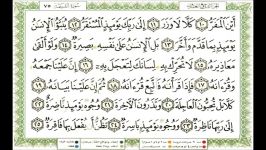 سورة القيامة ٧٥
أَيْنَ ٱلْمَفَرُّ ١٠ كَلَّا لَا وَزَرَ ١١ إِلَىٰ رَبِّكَ يَوْمَئِذٍ ٱلْمُسْتَقَرُّ ١٢ يُنَبَّؤُا ٱلْإِنسَٰنُ
يَوْمَئِذٍۭ بِمَا قَدَّمَ وَأَخَّرَ ١٣ بَلِ ٱلْإِنسَٰنُ عَلَىٰ نَفْسِهِۦ بَصِيرَةٌ ١٤ وَلَوْ أَلْقَىٰ
مَعَاذِيرَهُۥ ١٥ لَا تُحَرِّكْ بِهِۦ لِسَانَكَ لِتَعْجَلَ بِهِۦٓ ١٦ إِنَّ عَلَيْنَا جَمْعَهُۥ
وَقُرْءَانَهُۥ ١٧ فَإِذَا قَرَأْنَٰهُ فَٱتَّبِعْ قُرْءَانَهُۥ ١٨ ثُمَّ إِنَّ عَلَيْنَا بَيَانَهُۥ ١٩
كَلَّا بَلْ تُحِبُّونَ ٱلْعَاجِلَةَ ٢٠ وَتَذَرُونَ ٱلْءَاخِرَةَ ٢١ وُجُوهٌ يَوْمَئِذٍ نَّاضِرَةٌ ٢٢
إِلَىٰ رَبِّهَا نَاظِرَةٌ ٢٣ وَوُجُوهٌ يَوْمَئِذٍۭ بَاسِرَةٌ ٢٤ تَظُنُّ أَن يُفْعَلَ بِهَا فَاقِرَةٌ ٢٥